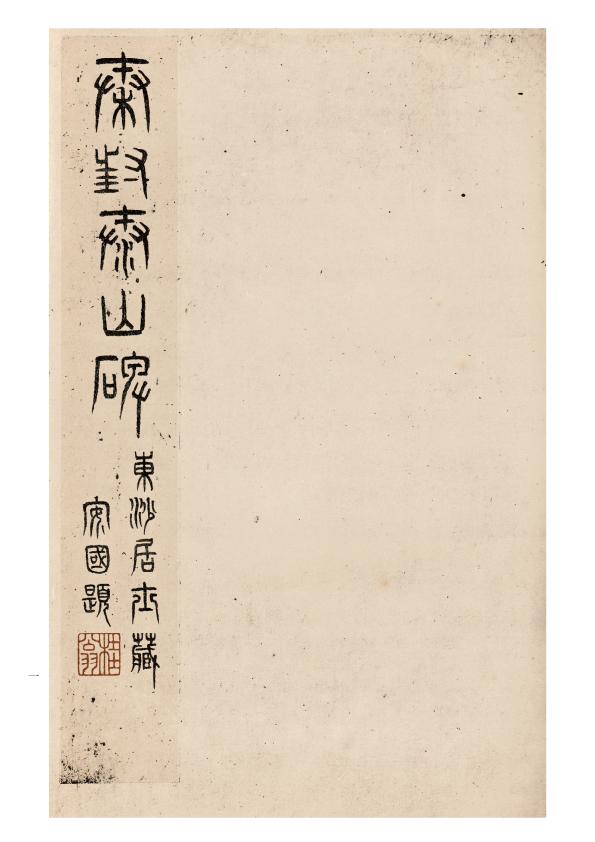 秦封泰山碑
東沙居士藏
安國題
桂翁